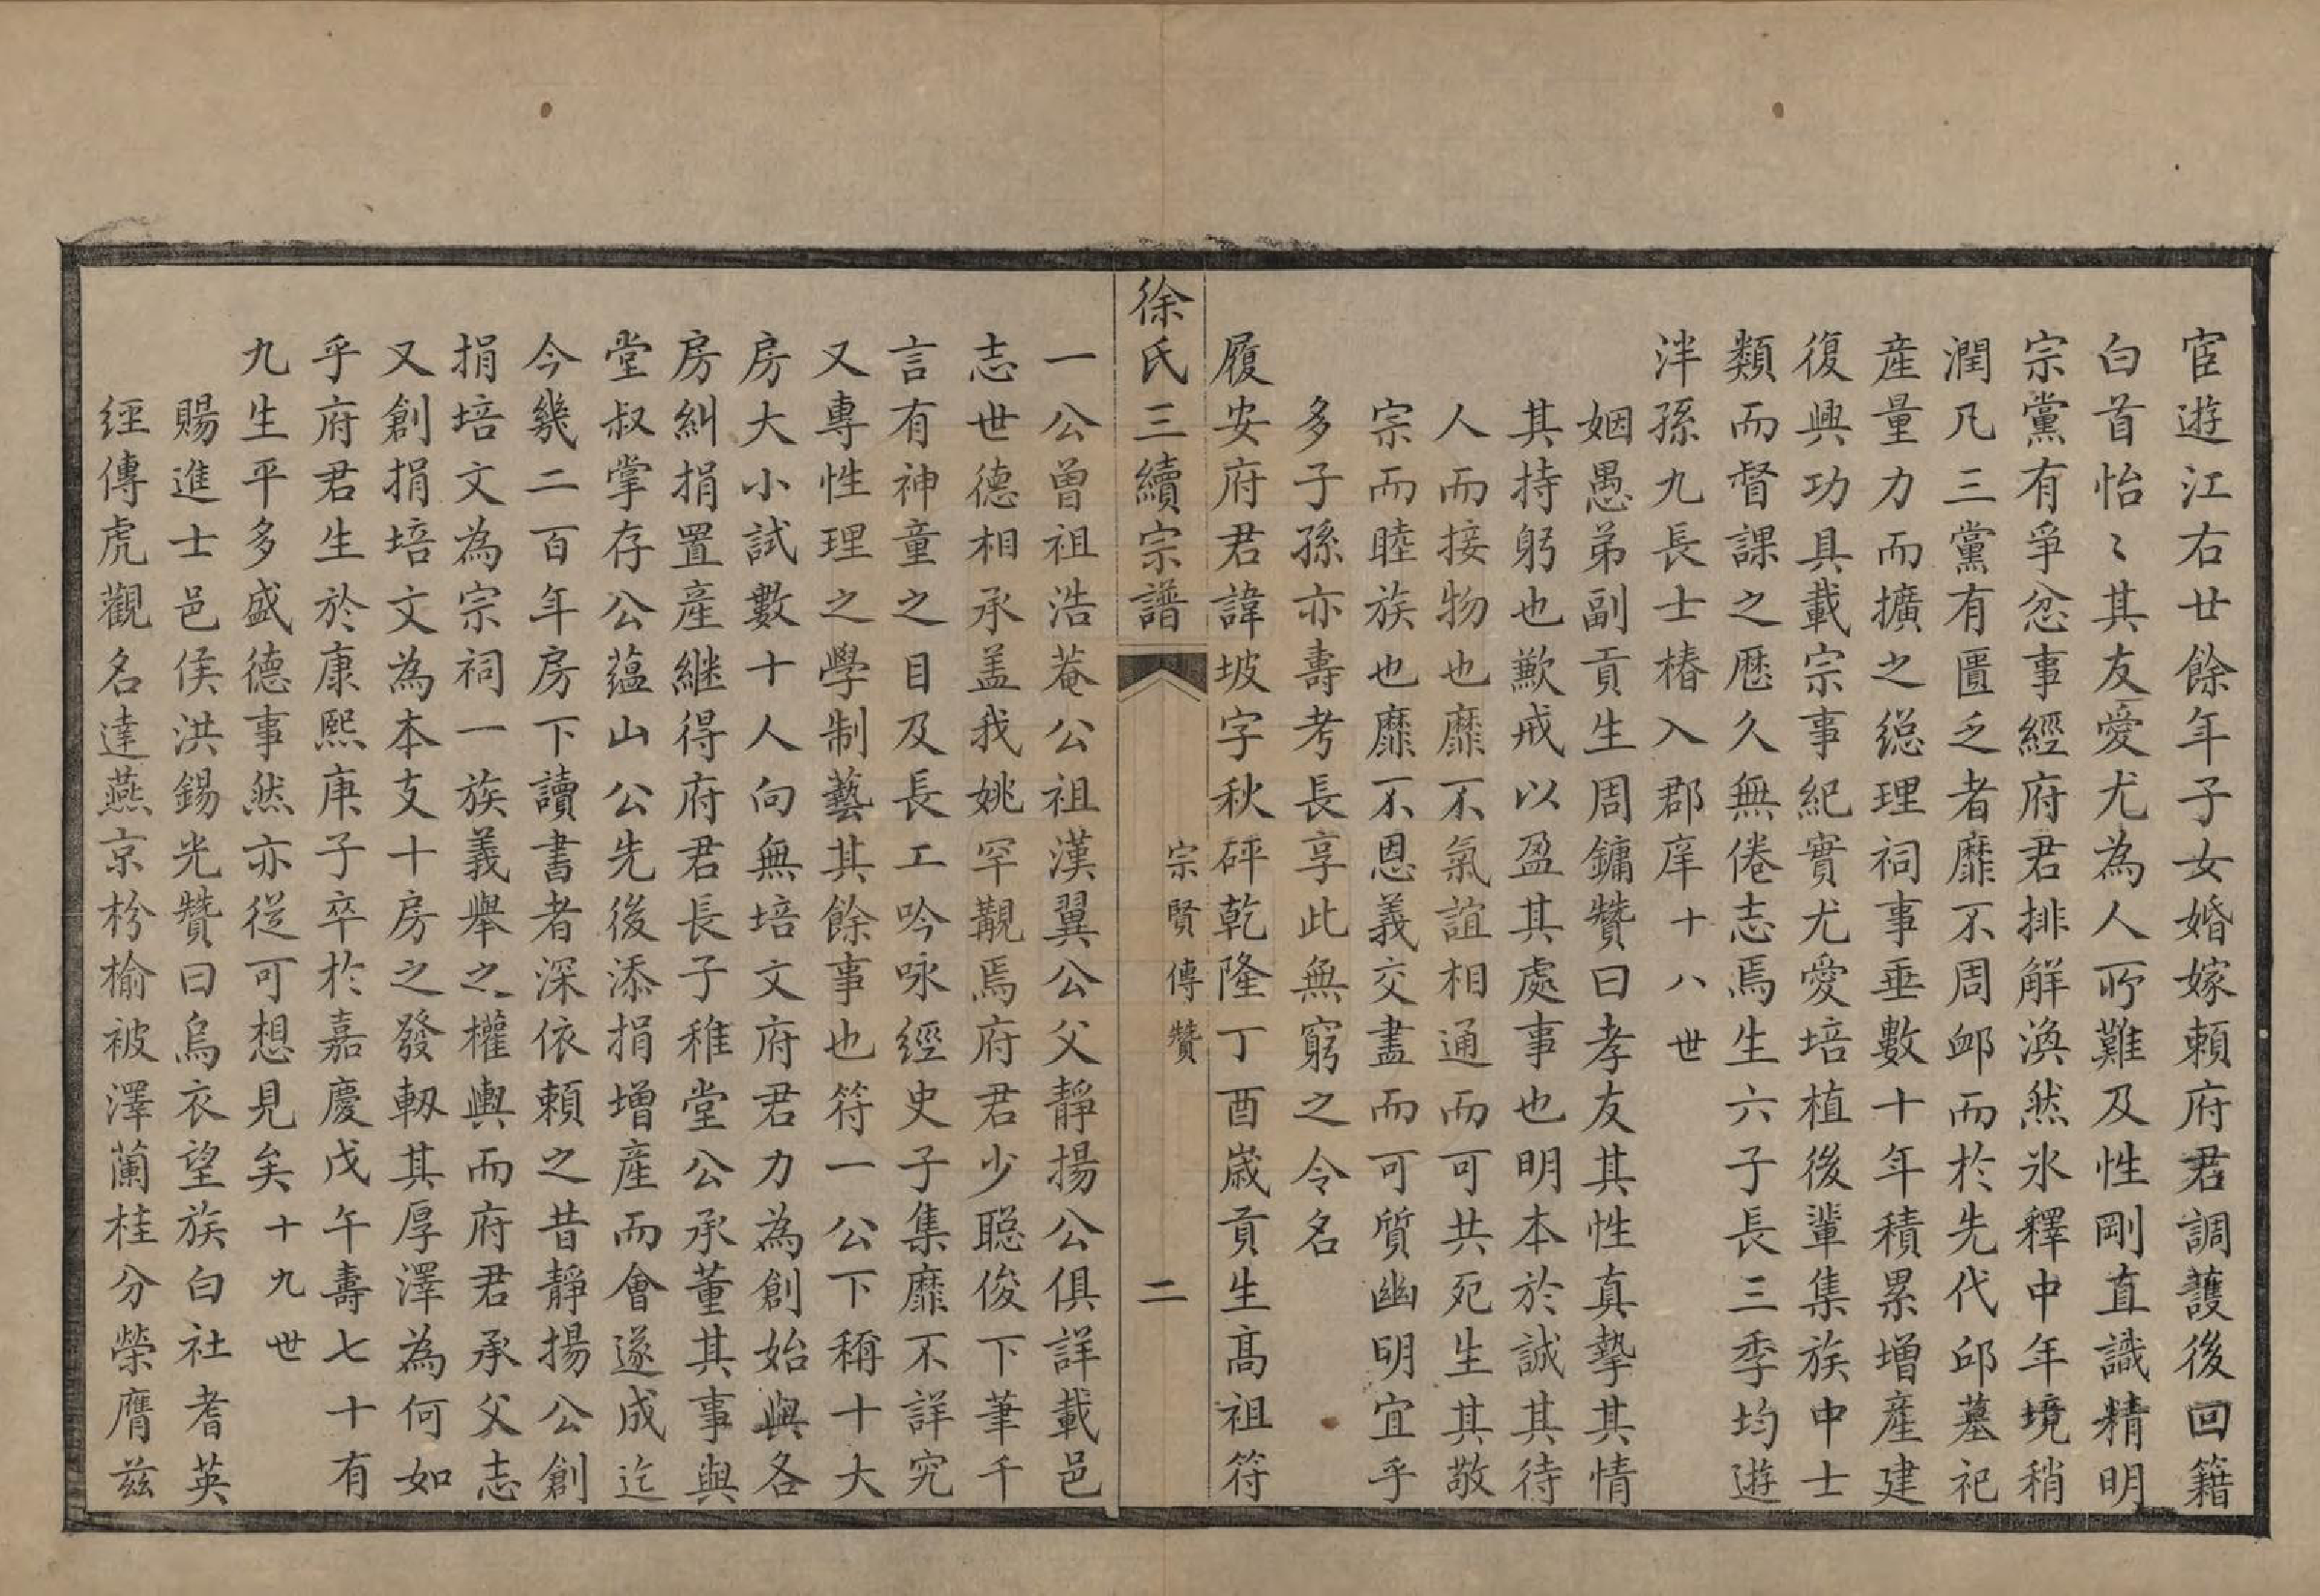 宦遊江右廿餘年子女婚嫁賴府君調護後回籍
白首怡〻其友愛尤為人所難及性剛直識精明
宗黨有爭忿事經府君排解渙然氷釋中年境稍
潤凡三黨有匱乏者靡不周卹而於先代邱墓祀
産量力而擴之総理祠事垂數十年積累增産建
復興功具載宗事紀實尤愛培植後輩集族中士
類而督課之歴久無倦志焉生六子長三季均遊
泮孫九長士椿入郡庠十八世
姻愚弟副貢生周鏞贊曰孝友其性真摯其情
其持躬也歉戒以盈其處事也明本於誠其待
人而接物也靡不氣誼相通而可共死生其敬
宗而睦族也靡不恩義交盡而可質幽明宜乎
多子孫亦壽考長享此無窮之令名
履安府君諱坡字秋砰乾隆丁酉歲貢生高祖符
徐氏三續宗譜
宗賢傳贊
二
一公曾祖浩菴公祖漢翼公父靜揚公俱詳載邑
志世德相承盖我姚罕覯焉府君少聰俊下筆千
言有神童之目及長工吟咏經史子集靡不詳究
又專性理之學制藝其餘事也符一公下稱十大
房大小試數十人向無培文府君力為創始與各
房糾捐置産継得府君長子稚堂公承董其事與
堂叔掌存公蕴山公先後添捐增産而會遂成迄
今幾二百年房下讀書者深依賴之昔靜揚公創
捐培文為宗祠一族義舉之權輿而府君承父志
又創捐培文為本支十房之發軔其厚澤為何如
乎府君生於康熙庚子卒於嘉慶戊午壽七十有
九生平多盛德事然亦從可想見矣十九世
賜進士邑侯洪錫光贊曰烏衣望族白社耆英
經傳虎觀名達燕京枌榆被澤蘭桂分榮膺兹